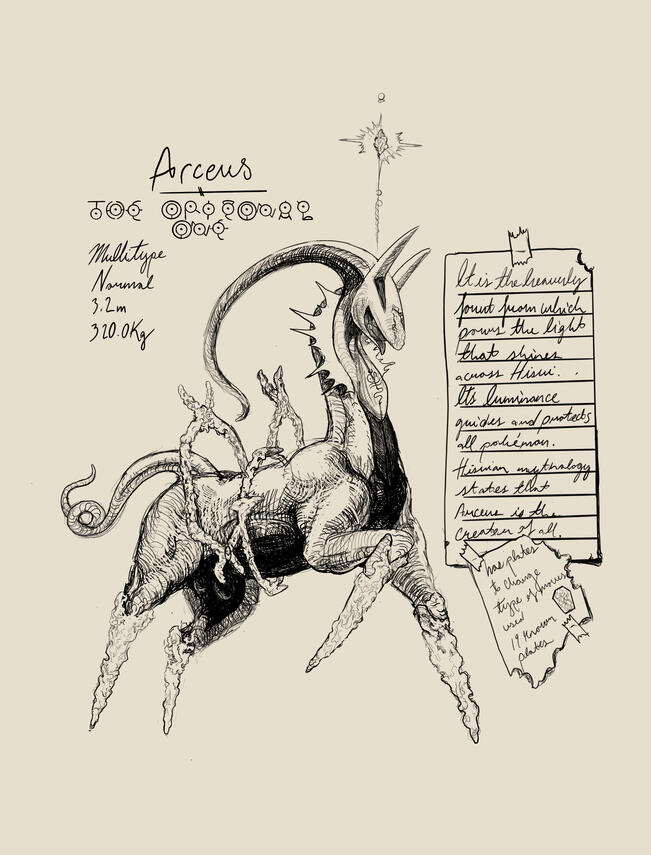 Arceus
THE ORIGINAL
ONE
Multitype
Normal
3.2m
320.0Kg
It is the heavenly
fount from which
pours the light
that shines
across Hisui. .
Its luminance
guides and protects
all pokémon.
Hisuian mythology
states that
Arceus is the
creator of all.
has plates
to change
type of moves
used
19 known
plates